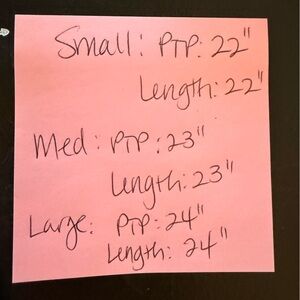 Small: PTP: 22"
Length: 22"
Med: PTP: 23"
Length: 23"
Large: PTP: 24"
Length: 24"